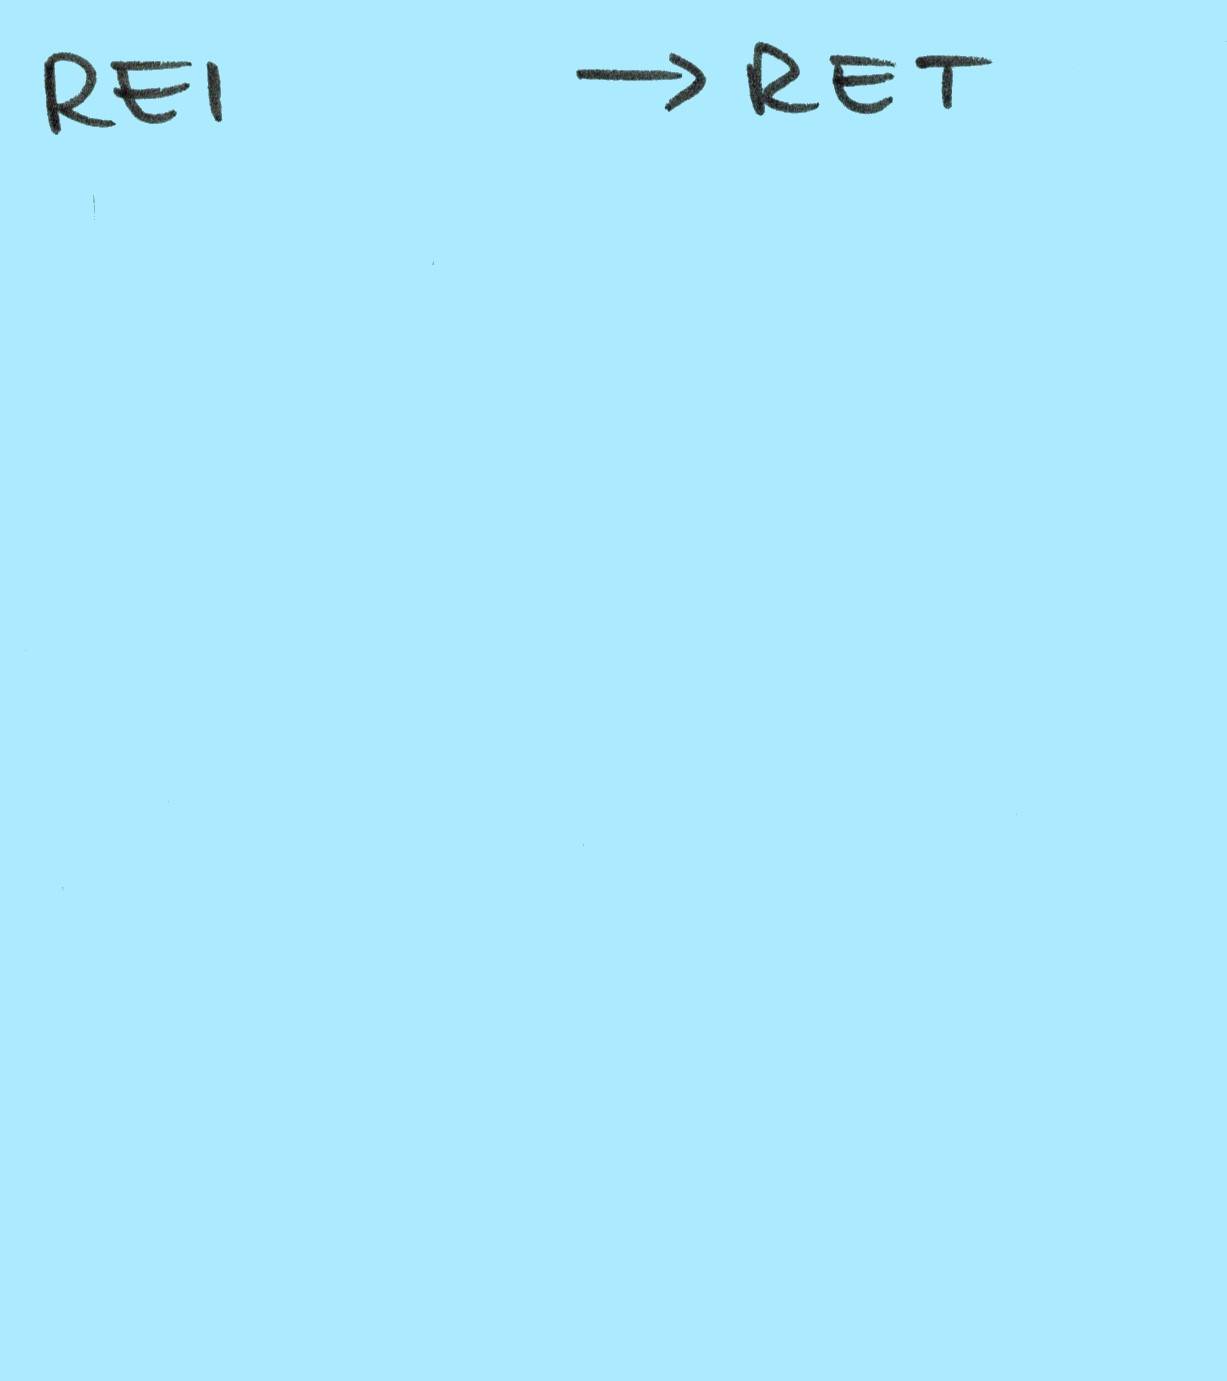 REI → RET